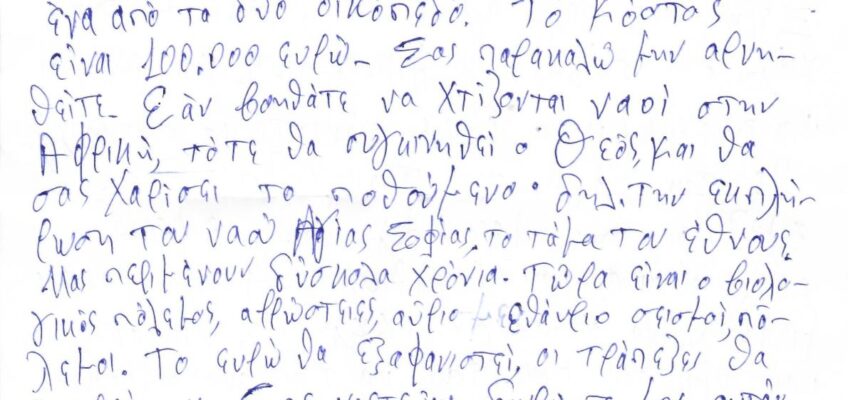 ένα από τα δυο οικόπεδα. Το κόστος
είναι 100.000 ευρώ. Σας παρακαλώ μην αρνη-
θείτε. Εάν βοηθάτε να χτίζονται ναοί στην
Αφρική, τότε θα συγκινηθεί ο Θεός, και θα
σας χαρίσει το ποθούμενο. δηλ. την εκπλή-
ρωση του ναού Αγίας Σοφίας, το τάμα του έθνους.
Μας περιμένουν δύσκολα χρόνια. Τώρα είναι ο βιολο-
γικός πόλεμος, αρρώστειες, αύριο μεθαύριο σεισμοί, πό-
λεμοι. Το ευρώ θα εξαφανιστεί, οι τράπεζες θα